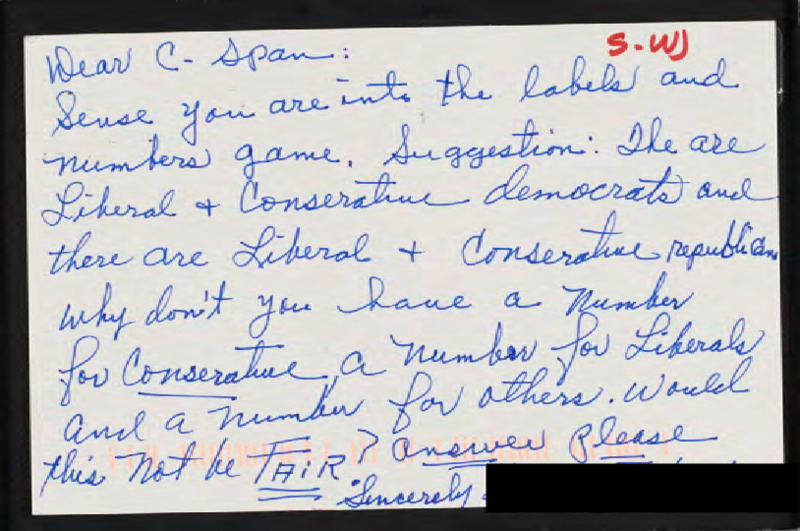 S-WJ
Dear C-Span:
Sense you are into the labels and
numbers game. Suggestion: The are
Liberal + Conserative democrats and
there are Liberal + Conserative republicans
why don't you have a number
for Conserative, a number for Liberals
and a number for others. Would
this not be FAiR? answer Please
Sincerely